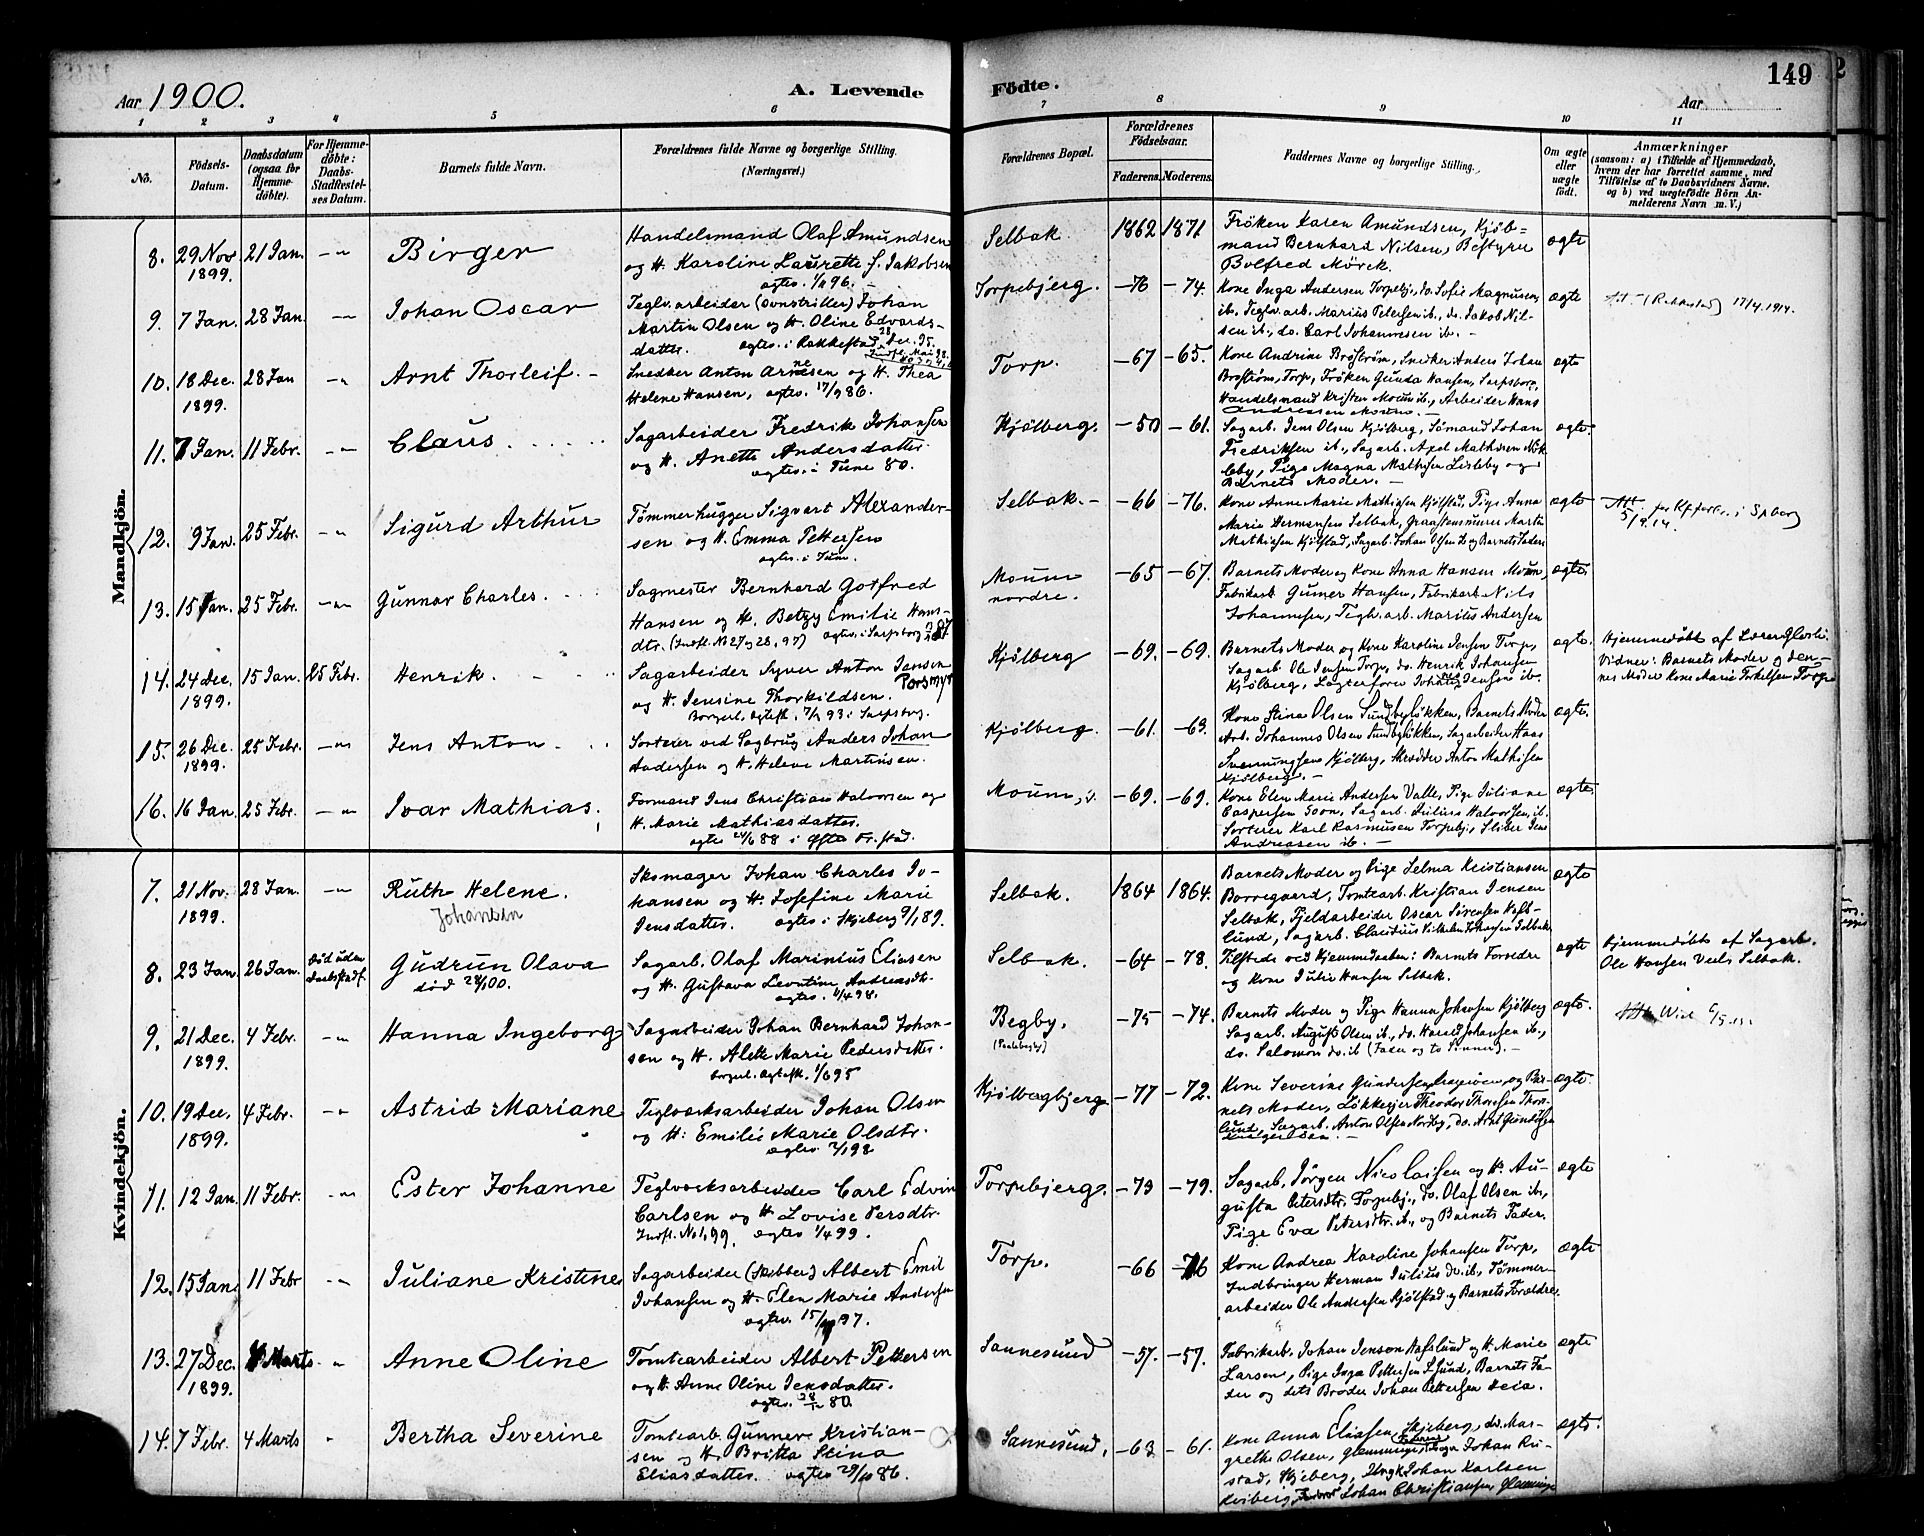 Aar 1900.
A. Levende
Födte.
149
Aar
1 2 3 4 5 6 7 8 9 10 11
No.
Födsels-
Datum.
Daabsdatum
(ogsaa for
Hjemme-
döbte).
For Hjemme-
döbte:
Daabs-
Stadfestel-
ses Datum.
Barnets fulde Navn.
Forældrenes fulde Navne og borgerlige Stilling.
(Næringsvei.)
Forældrenes Bopæl.
Forældrenes
Födselsaar.
Faderens. Moderens.
Faddernes Navne og borgerlige Stilling.
Om ægte
eller
uægte
födt.
Anmærkninger
(saasom: a) i Tilfælde af Hjemmedaab,
hvem der har forrettet samme, med
Tilföielse af to Daabsvidners Navne,
og b) ved uægtefödte Börn An-
melderens Navn m. V.)
Mandkjön.
8. 29 Nov 1899. 21 Jan. Birger
Handelsmand Olaf Amundsen
og H. Karoline Laurette f. Jakobsen
Selbak. 1862 1871
Fröken Karen Amundsen, Kjöb-
mand Bernhard Nilsen, Bestyrer
Bolfred Mörck.
ægte
9. 7 Jan. 28 Jan. Johan Oscar
Teglv.arbeider (ovnstriller) Johan
Martin Olsen og H. Oline Edvards-
datter. ægtev. i Rakkestad 28 Dec. 95.
Torpebjerg. -76 -74.
Kone Inga Andersen Torpebj., do. Sofie Magnusen
ib., Teglv. arb. Marius Petersen ib., do. Jakob Nil-
sen ib., do. Carl Johannesen ib. -
ægte
(Rakkestad) 17/4 1914.
10. 18 Dec. 1899. 28 Jan Arnt Thorleif. -
Snedker Anton Arnesen og H. Thea
Helene Hansen, ægtev. 17/9 86.
Torp. -67 -65.
Kone Andrine Broström, Snedker Anders Johan
Broström, Torp, Fröken Gunda Hansen, Sarpsborg,
Handelsmand Kristen Moum ib., Arbeider Hans
Andreassen Moum. -
ægte
11. 7 Jan. 11 Febr. Claus.
Sagarbeider Fredrik Johansen
og H. Anette Andersdatter.
ægtev. i Tune 80.
Kjölberg. -50 -61.
Sagarb. Jens Olsen Kjölberg, Sömand Johan
Fredriksen ib., Sagarb. Axel Mathisen Nök
leby, Pige Magna Mathisen Lisleby og
Barnets Moder. -
ægte.
12. 9 Jan. 25 Febr. Sigurd Arthur
Tömmerhugger Sigvart Alexander-
sen og H. Emma Pettersen
ægtev. i Tune.
Selbak. - -66 -76.
Kone Anne Marie Mathisen Kjölstad, Pige Anna
Marie Hermansen Selbak, Graastensmurer Martin
Mathisen Kjölstad, Sagarb. Johan Olsen ib og Barnets Fader.
ægte
13. 15 Jan. 25 Febr. Gunnar Charles.
Sagmester Bernhard Gotfred
Hansen og H. Betzy Emilie Hans-
dtr. (Indfl. No 27 og 28, 97) ægtev. i Sarpsborg
Moum
nordre. -65 -67.
Barnets Moder og Kone Anna Hansen Moum,
Fabrikarb. Gumer Hansen, Fabrikarb. Nils
Johannesen, Teglv. arb. Marius Andersen
ægte.
14. 24 Dec. 1899. 15 Jan. 25 Febr. Henrik.
Sagarbeider Syver Anton Jensen
Porsmyr
og H. Jensine Thorkildsen.
Borgerl. Ægtesk. 7/1 93 i Sarpsborg.
Kjölberg -69. -69.
Barnets Moder og Kone Karoline Jensen Torp,
Sagarb. Ole Jensen Torp, do. Henrik Johansen
Kjölberg,
ægte.
Hjemmedöbt af Lærer
Vidner: Barnets Moder og den-
nes Moder Kone Marie Torkelsen Torp
15. 26 Dec. 1899. 25 Febr. Jens Anton
Sorterer ved Sagbrug Anders Johan
Andersen og H. Helene Martinsen.
Kjölberg. -61. -63.
Kone Stina Olsen Sundbylökken, Barnets Moder
Arb. Johannes Olsen Sundbylökken, Sagarbeider Hans
Svenningsen Kjölberg, Skrædder Anton Mathisen
Kjölberg. -
ægte.
16. 16 Jan. 25 Febr. Ivar Mathias.
Formand Jens Christian Halvorsen og
H. Marie Mathiasdatter.
ægtev 24/6 88 i Östre Fr.stad.
Moum, -69. -69.
Kone Elen Marie Andersen Valle, Pige Juliane
Caspersen Soon, Sagarb. Julius Halvorsen, ib.
Sorterer Karl Rasmusen Torpebj., Sliber Jens
Andreasen ib. -
ægte.
Kvindekjön.
7. 21 Nov. 1899. 28 Jan. Ruth Helene.
Johansen
Skomager Johan Charles Jo-
hansen og H. Josefine Marie
Jensdatter. ægtev. i Skjeberg 9/1 89.
Selbak. 1864 1864.
Barnets Moder og Pige Selma Kristiansen
Borregaard, Tomtearb. Kristian Jensen
Selbak, Fjeldarbeider Oscar Sörensen Hafs-
lund, Sagarb. Claudius Vilhelm Johansen Selbak
ægte
8. 23 Jan 26 Jan. Död uden
Daabsstadf. Gudrun Olava
död 28/1 00.
Sagarb. Olaf Marinius Eliasen
og H. Gustava Leontine Andreasdtr.
ægtev. 1/4 98.
Selbak. -64 -78.
Tilstede ved Hjemmedaaben: Barnets Forældre
og Kone Julie Hansen Selbak.
ægte
Hjemmedöbt af Sagarb.
Ole Hansen Veel Selbak.
9. 21 Dec. 1899. 4 Febr. Hanna Ingeborg
Sagarbeider Johan Bernhard Johan-
sen og H. Alette Marie Pedersdatter.
borgerl. Ægtesk. 1/6 95
Begby. -75 -74.
Barnets Moder og Pige Hanna Johansen Kjölberg
Sagarb. August Olsen ib., do. Harald Johansen ib.,
do. Salomon do. ib (Fader og to Sönner). -
ægte.
10. 19 Dec. 1899. 4 Febr. Astrid Mariane
Teglværksarbeider Johan Olsen
og H. Emilie Marie Olsdtr.
ægtev. 7/1 98
Kjölbergbjerg -77 -72.
Kone Severine Gundersen og Bar-
nets Moder, Theodor Thoresen
lund, Sagarb. Anton Olsen Nordby, do. Arnt Gundersen
ægte.
11. 12 Jan. 11 Febr. Ester Johanne
Teglværksarbeider Carl Edvin
Carlsen og H. Lovise Persdtr.
Indfl. No 1, 99. ægtev 1/4 99.
Torpebjerg. -73 -79.
Sagarb. Jörgen Nicolaisen og H. Au-
gusta Petersdtr. Torpebj., do. Olaf Olsen ib.,
Pige Eva Petersdtr. ib., og Barnets Fader.
ægte
12. 15 Jan 11 Febr Juliane Kristine
Sagarbeider (Skibber) Albert Emil
Johansen og H. Elen Marie Andersen
ægtev. 15/ 97.
Torp. -66 -76
Kone Andrea Karoline Johansen Torp,
Indbringer Herman Julius do. ib., Tömmer-
arbeider Ole Andersen Kjölstad og Barnets Forældre.
ægte
13. 27 Dec. 1899. 4 Marts. Anne Oline
Tomtearbeider Albert Pettersen
og H. Anne Oline Jensdatter.
ægtev. 28/12 80.
Sannesund -57. -57.
Fabrikarb. Johan Jenson Hafslund og H. Marie
Larsen, Pige Inga Pettersen S.sund, Barnets Fa-
der og dets Broder Johan Pettersen Heia.
ægte
14. 7 Febr. 4 Marts Bertha Severine
Tomtearb. Gunner Kristian-
sen og H. Britta Stina
Eliasdatter. ægtev 29/ 86.
Sannesund, -63 -61.
Kone Anna Eliasen, Skjeberg, do. Mar-
grethe Olsen, Glemminge, Johan Ru-
stad, Skjeberg, Ungk. Johan Karlsen
Johan Christiansen, Glemminge
ægte.